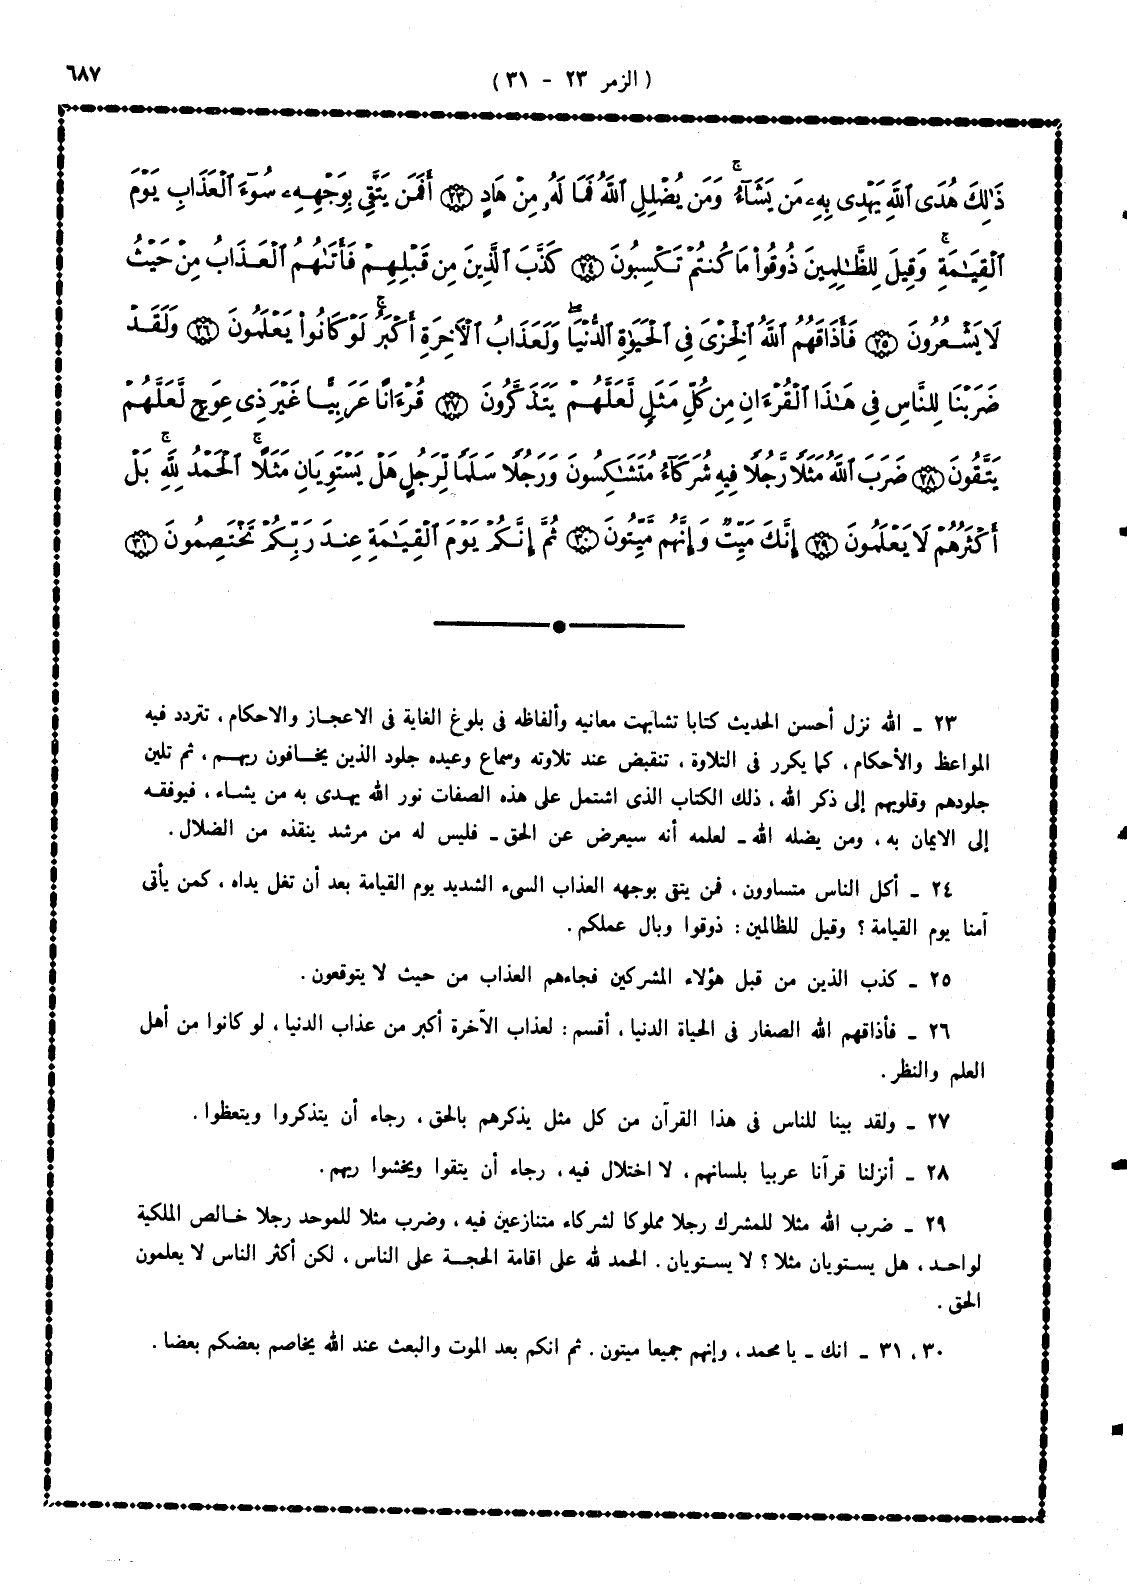 ٦٨٧
( الزمر ٢٣ - ٣١ )
ذَٰلِكَ هُدَى ٱللَّهِ يَهْدِى بِهِۦ مَن يَشَآءُ ۚ وَمَن يُضْلِلِ ٱللَّهُ فَمَا لَهُۥ مِنْ هَادٍ ﴿٢٣﴾ أَفَمَن يَتَّقِى بِوَجْهِهِۦ سُوٓءَ ٱلْعَذَابِ يَوْمَ
ٱلْقِيَـٰمَةِ ۚ وَقِيلَ لِلظَّـٰلِمِينَ ذُوقُوا۟ مَا كُنتُمْ تَكْسِبُونَ ﴿٢٤﴾ كَذَّبَ ٱلَّذِينَ مِن قَبْلِهِمْ فَأَتَىٰهُمُ ٱلْعَذَابُ مِنْ حَيْثُ
لَا يَشْعُرُونَ ﴿٢٥﴾ فَأَذَاقَهُمُ ٱللَّهُ ٱلْخِزْىَ فِى ٱلْحَيَوٰةِ ٱلدُّنْيَا ۖ وَلَعَذَابُ ٱلْـَٔاخِرَةِ أَكْبَرُ ۚ لَوْ كَانُوا۟ يَعْلَمُونَ ﴿٢٦﴾ وَلَقَدْ
ضَرَبْنَا لِلنَّاسِ فِى هَـٰذَا ٱلْقُرْءَانِ مِن كُلِّ مَثَلٍ لَّعَلَّهُمْ يَتَذَكَّرُونَ ﴿٢٧﴾ قُرْءَانًا عَرَبِيًّا غَيْرَ ذِى عِوَجٍ لَّعَلَّهُمْ
يَتَّقُونَ ﴿٢٨﴾ ضَرَبَ ٱللَّهُ مَثَلًا رَّجُلًا فِيهِ شُرَكَآءُ مُتَشَـٰكِسُونَ وَرَجُلًا سَلَمًا لِّرَجُلٍ هَلْ يَسْتَوِيَانِ مَثَلًا ۚ ٱلْحَمْدُ لِلَّهِ ۚ بَلْ
أَكْثَرُهُمْ لَا يَعْلَمُونَ ﴿٢٩﴾ إِنَّكَ مَيِّتٌ وَإِنَّهُم مَّيِّتُونَ ﴿٣٠﴾ ثُمَّ إِنَّكُمْ يَوْمَ ٱلْقِيَـٰمَةِ عِندَ رَبِّكُمْ تَخْتَصِمُونَ ﴿٣١﴾
٢٣ ـ الله نزل أحسن الحديث كتابا تشابهت معانيه وألفاظه فى بلوغ الغاية فى الاعجاز والاحكام ، تتردد فيه
المواعظ والأحكام ، كما يكرر فى التلاوة ، تنقبض عند تلاوته وسماع وعيده جلود الذين يخافون ربهم ، ثم تلين
جلودهم وقلوبهم إلى ذكر الله ، ذلك الكتاب الذى اشتمل على هذه الصفات نور الله يهدى به من يشاء ، فيوفقه
إلى الايمان به ، ومن يضله الله ـ لعلمه أنه سيعرض عن الحق ـ فليس له من مرشد ينقذه من الضلال .
٢٤ ـ أكل الناس متساوون ، فمن يتقى بوجهه العذاب السىء الشديد يوم القيامة بعد أن تغل يداه ، كمن يأتى
آمنا يوم القيامة ؟ وقيل للظالمين : ذوقوا وبال عملكم .
٢٥ ـ كذب الذين من قبل هؤلاء المشركين فجاءهم العذاب من حيث لا يتوقعون .
٢٦ ـ فأذاقهم الله الصغار فى الحياة الدنيا ، أقسم : لعذاب الآخرة أكبر من عذاب الدنيا ، لو كانوا من أهل
العلم والنظر .
٢٧ ـ ولقد بينا للناس فى هذا القرآن من كل مثل يذكرهم بالحق ، رجاء أن يتذكروا ويتعظوا .
٢٨ ـ أنزلنا قرآنا عربيا بلسانهم ، لا اختلال فيه ، رجاء أن يتقوا ويخشوا ربهم .
٢٩ ـ ضرب الله مثلا للمشرك رجلا مملوكا لشركاء متنازعين فيه ، وضرب مثلا للموحد رجلا خالص الملكية
لواحد ، هل يستويان مثلا ؟ لا يستويان . الحمد لله على اقامة الحجة على الناس ، لكن أكثر الناس لا يعلمون
الحق .
٣٠ ، ٣١ ـ انك ـ يا محمد ، وإنهم جميعا ميتون . ثم انكم بعد الموت والبعث عند الله يخاصم بعضكم بعضا .